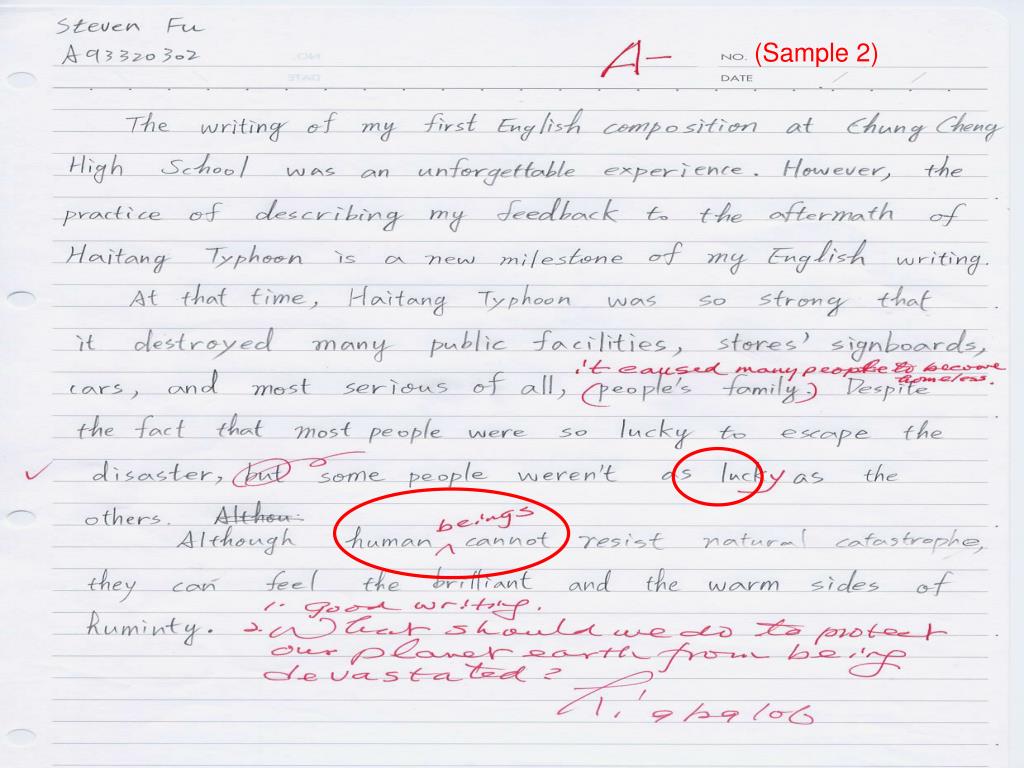 Steven Fu
A93320302
A-
NO. (Sample 2)
DATE
The writing of my first English composition at Chung Cheng
High School was an unforgettable experience. However, the
practice of describing my feedback to the aftermath of
Haitang Typhoon is a new milestone of my English writing.
At that time, Haitang Typhoon was so strong that
it destroyed many public facilities, stores' signboards,
it caused many people to become
homeless.
cars, and most serious of all, (people's family.) Despite
the fact that most people were so lucky to escape the
disaster, but some people weren't as lucky as the
others. Althou
beings
Although human cannot resist natural catastrophe,
they can feel the brilliant and the warm sides of
huminty.
1. good writing.
2. What should we do to protect
our planet earth from being
devastated?